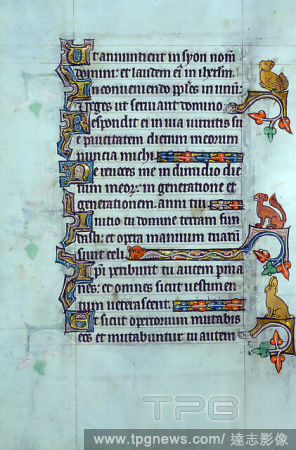 Ut annuntient in syon nom
domini: et laudem ei in iherlm.
In conveniendo pples in unu:
et reges ut serviant domino.
Respondit ei in via virtutis sue
paucitatem dierum meorum
nuncia michi.
Ne revoces me in dimidio die
rum meor in generatione et
generationem anni tui
Initio tu domine terram fun
dasti: et opera manuum tuarum
sunt celi.
Ipi peribunt tu autem pma
nes: et omnes sicut vestimen
tum veterascent.
Et sicut opertorium mutabis
eos et mutabuntur tu autem
TPG
www.tpgnews.com/ 達志影像